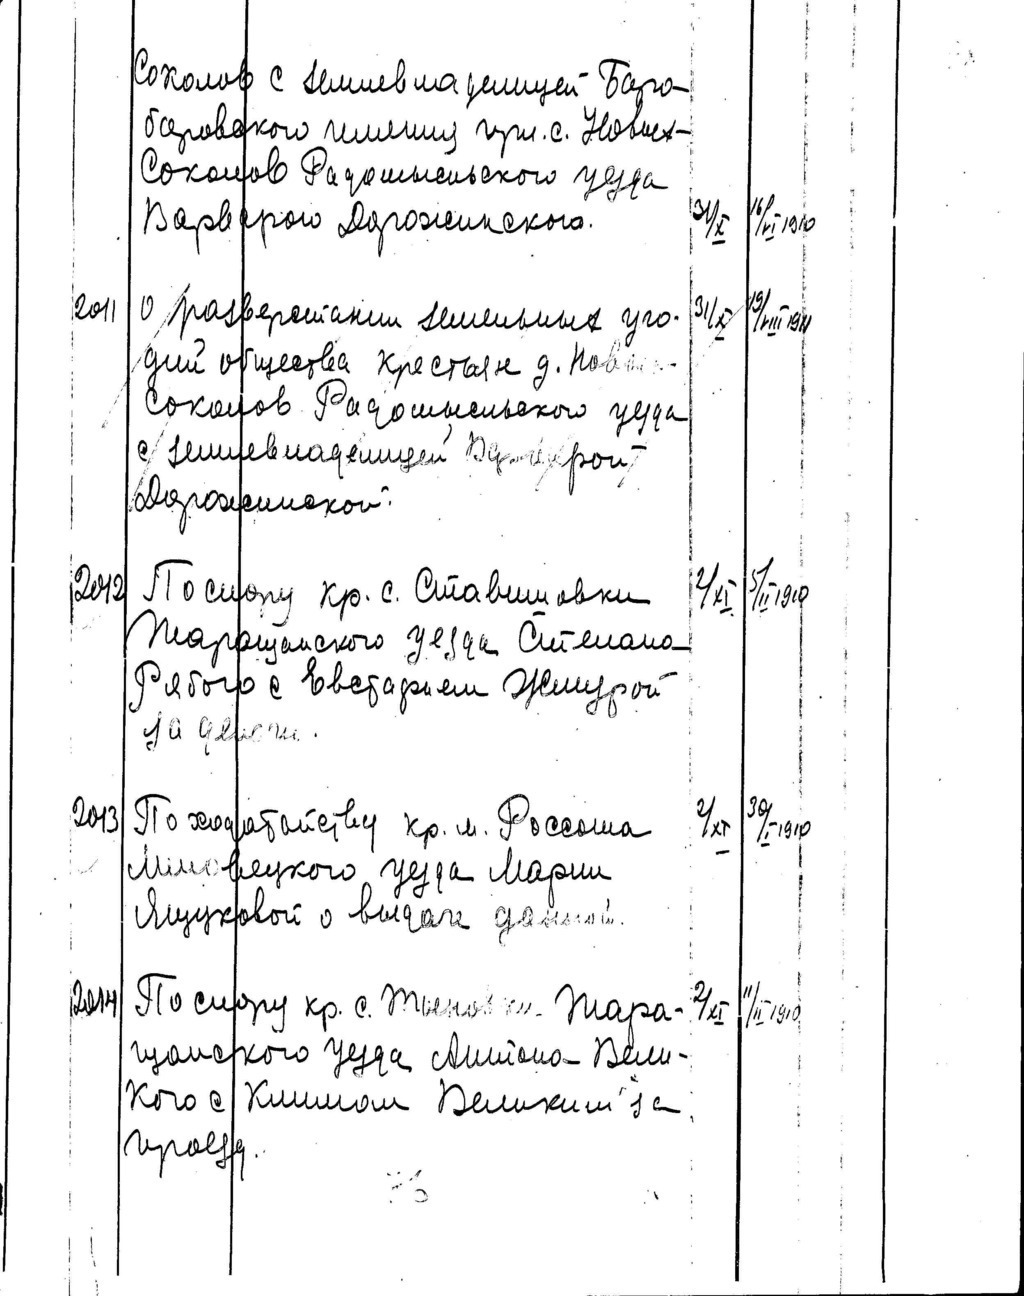 Соколов с землевладелицей Баро-
баровского имения при. с. Новых-
Соколов Радомысльского уезда
Варварою Дорожинскою. 31/X 16/VI 1910
2011 О разверстании земельных уго- 31/X 19/VIII 1911
дий общества крестьян д. Новых-
Соколов Радомысльского уезда
с землевладелицей Варварой
Дорожинской.
2012 По спору кр. с. Ставишовки 2/XI 5/II 1910
Таращанского уезда Степана
Рябого с Евстафием Жмурой
за
2013 По ходатайству кр. м. Россоша 2/XI 30/I 1910
Липовецкого уезда Марии
Ящуковой о выдаче данной.
2014 По спору кр. с. Тара- 2/XI 11/II 1910
щанского уезда Антона Вели-
кого с Климом Великим за
проезд.